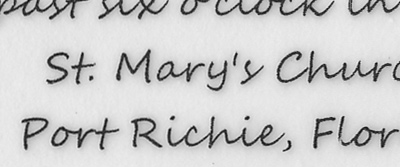 past six o'clock in
St. Mary's Churc
Port Richie, Flor